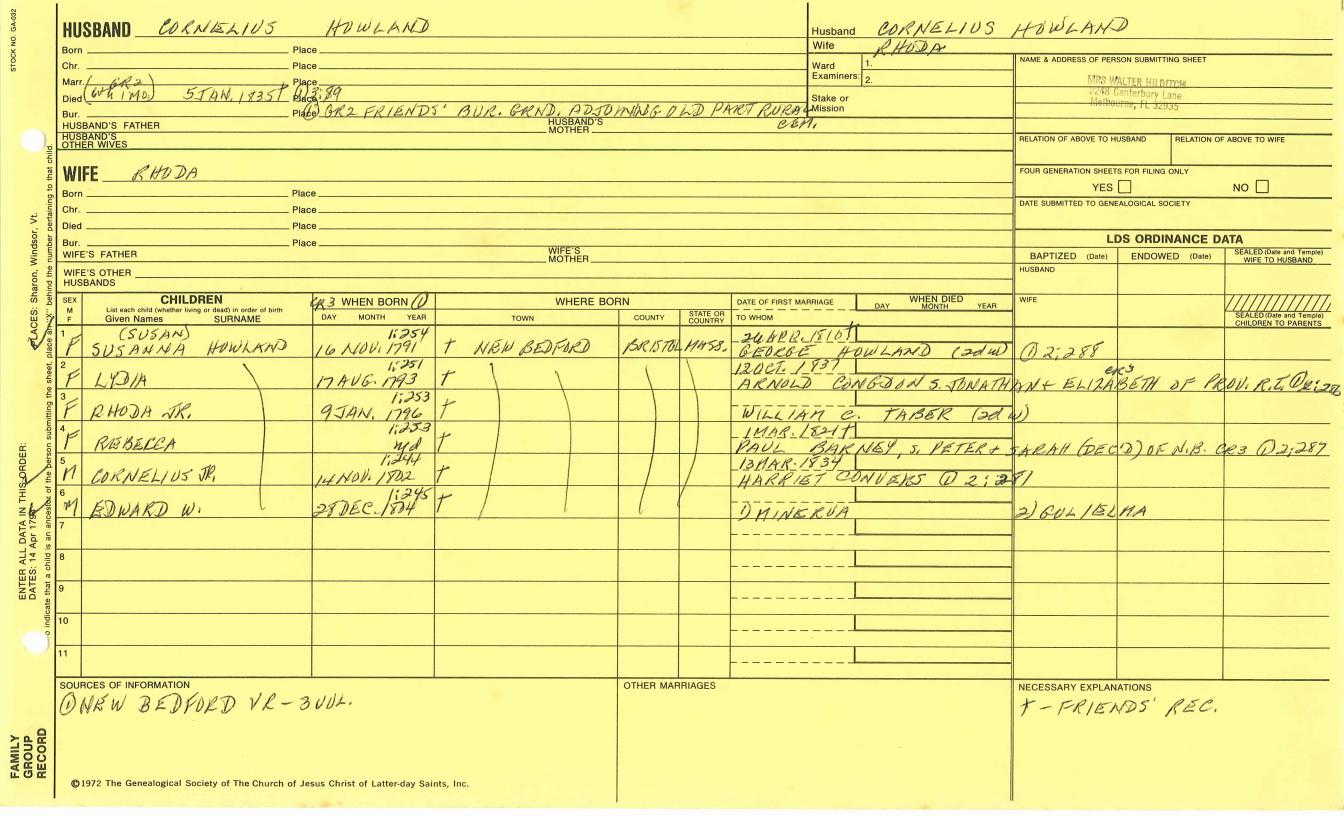 STOCK NO. GA-032
HUSBAND CORNELIUS HOWLAND
Born Place
Chr. Place
Marr. (GR2 Place
Died 6th 1 MO.) 5 JAN. 1835† Place ① 3:89
Bur. Place ① GR2 FRIENDS' BUR. GRND. ADJOINING OLD PART RURAL CEM.
HUSBAND'S FATHER HUSBAND'S MOTHER
HUSBAND'S OTHER WIVES
Husband CORNELIUS HOWLAND
Wife RHODA
Ward Examiners: 1. 2.
Stake or Mission
NAME & ADDRESS OF PERSON SUBMITTING SHEET
MRS WALTER HILDITCH
2248 Canterbury Lane
Melbourne, FL 32935
RELATION OF ABOVE TO HUSBAND RELATION OF ABOVE TO WIFE
FOUR GENERATION SHEETS FOR FILING ONLY
YES NO
DATE SUBMITTED TO GENEALOGICAL SOCIETY
WIFE RHODA
Born Place
Chr. Place
Died Place
Bur. Place
WIFE'S FATHER WIFE'S MOTHER
WIFE'S OTHER HUSBANDS
LDS ORDINANCE DATA
BAPTIZED (Date) ENDOWED (Date) SEALED (Date and Temple) WIFE TO HUSBAND
HUSBAND
WIFE
SEALED (Date and Temple) CHILDREN TO PARENTS
SEX M F
CHILDREN
List each child (whether living or dead) in order of birth
Given Names SURNAME
CR3 WHEN BORN ①
DAY MONTH YEAR
WHERE BORN
TOWN COUNTY STATE OR COUNTRY
DATE OF FIRST MARRIAGE
TO WHOM
WHEN DIED
DAY MONTH YEAR
1 (SUSAN) 1:254 26 APR. 1810†
F SUSANNA HOWLAND 16 NOV. 1791 † NEW BEDFORD BRISTOL MASS. GEORGE HOWLAND (2d w) ① 2:288
2 1:251 12 OCT. 1837
F LYDIA 17 AUG. 1793 † ARNOLD CONGDON S. JONATHAN + ELIZABETH OF PROV. R.I. CR3
3 1:253
F RHODA JR. 9 JAN. 1796 † WILLIAM C. TABER (2d w)
4 1:253 1 MAR. 1821†
F REBECCA nd † PAUL BARNEY, S. PETER + SARAH (DEC'D) OF N.B. CR3 ① 2:287
5 1:244 13 MAR. 1834
M CORNELIUS JR. 14 NOV. 1802 † HARRIET CONVERS ① 2:281
6 1:245
M EDWARD W. 28 DEC. 1804 † 1) MINERVA 2) GULIELMA
7
8
9
10
11
SOURCES OF INFORMATION
① NEW BEDFORD VR - 3 VOL.
OTHER MARRIAGES
NECESSARY EXPLANATIONS
† - FRIENDS' REC.
©1972 The Genealogical Society of The Church of Jesus Christ of Latter-day Saints, Inc.
FAMILY GROUP RECORD
ENTER ALL DATA IN THIS ORDER:
DATES: 14 Apr 179
PLACES: Sharon, Windsor, Vt.
o indicate that a child is an ancestor of the person submitting the sheet, place an "X" behind the number pertaining to that child.